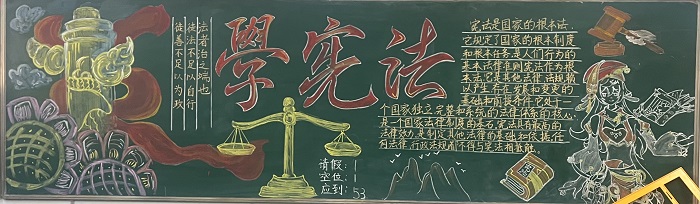 法者治之端也
徒法不足以自行
徒善不足以为政
學宪法
宪法是国家的根本法
它规定了国家的根本制度
和根本任务是人们行为的
基本法律准则宪法作为根
本法它是其他法律法规赖
以产生存在发展和变更的
基础和前提条件它处于一
个国家独立完整和系统的法律体系的核心
是一个国家法律制度的基石它具有最高的
法律效力是制定其他法律的基础和依据任
何法律行政法规都不得与宪法相抵触
请假:1
空位:1
应到:53